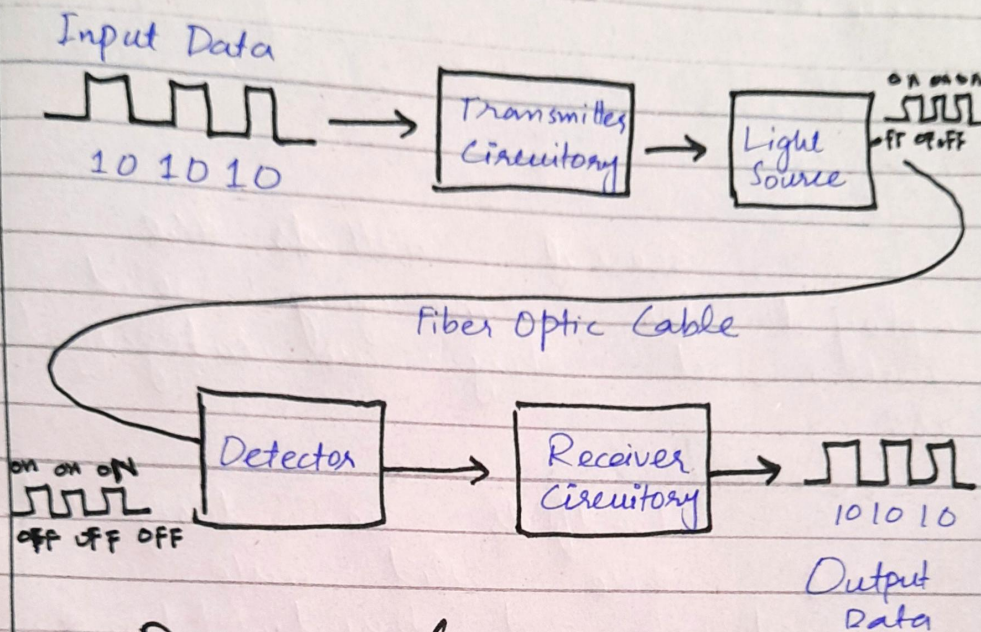 Input Data
10 10 10
Transmitter
Circuitory
Light
Source
on on on
off off
Fiber Optic Cable
on on ON
OFF OFF OFF
Detector
Receiver
Circuitory
10 10 10
Output
Data